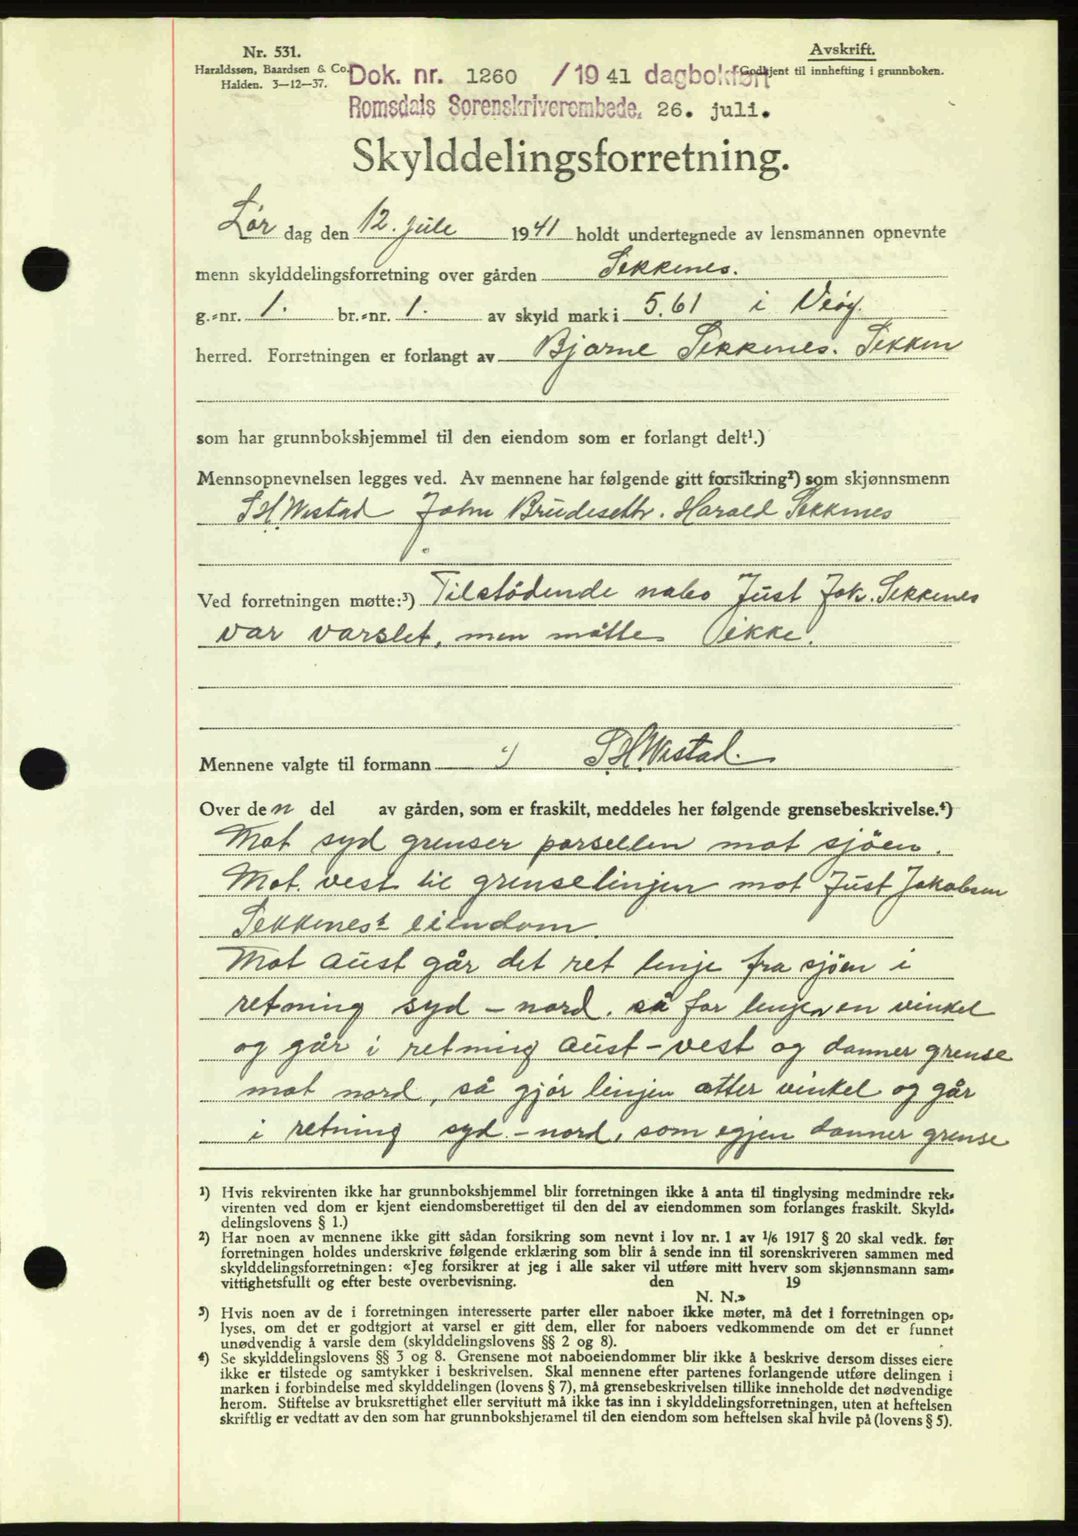 Nr. 531.
Haraldssøn, Baardsen & Co.
Halden. 3—12—37.
Avskrift.
Godkjent til innhefting i grunnboken.
Dok. nr. 1260 /1941 dagbokført
Romsdals Sorenskriverembede, 26. juli.
Skylddelingsforretning.
Lør dag den 12. jule 1941 holdt undertegnede av lensmannen opnevnte
menn skylddelingsforretning over gården Sekkenes.
g.-nr. 1. br.-nr. 1. av skyld mark i 5,61 i Veøy
herred. Forretningen er forlangt av Bjarne Sekkenes. Sekken
som har grunnbokshjemmel til den eiendom som er forlangt delt¹.)
Mennsopnevnelsen legges ved. Av mennene har følgende gitt forsikring²) som skjønnsmenn
S.H. Westad John Brudeseth. Harald Sekknes
Ved forretningen møtte:³) Tilstødende nabo Just Jak. Sekkenes
var varslet, men møtte ikke.
Mennene valgte til formann S.H. Westad.
Over den del av gården, som er fraskilt, meddeles her følgende grensebeskrivelse.⁴)
Mot syd grenser parsellen mot sjøen.
Mot vest til grenselinjen mot Just Jakobsen
Sekkenes's eiendom.
Mot aust går det ret linje fra sjøen i
retning syd - nord. så før linjen en vinkel
og går i retning aust - vest og danner grense
mot nord, så gjør linjen atter vinkel og går
i retning syd - nord, som egjen danner grense
¹) Hvis rekvirenten ikke har grunnbokshjemmel blir forretningen ikke å anta til tinglysing medmindre rek-
virenten ved dom er kjent eiendomsberettiget til den del av eiendommen som forlanges fraskilt. Skyld-
delingslovens § 1.)
²) Har noen av mennene ikke gitt sådan forsikring som nevnt i lov nr. 1 av 1/6 1917 § 20 skal vedk. før
forretningen holdes underskrive følgende erklæring som blir å sende inn til sorenskriveren sammen med
skylddelingsforretningen: «Jeg forsikrer at jeg i alle saker vil utføre mitt hverv som skjønnsmann sam-
vittighetsfullt og efter beste overbevisning. den 19
N. N.»
³) Hvis noen av de i forretningen interesserte parter eller naboer ikke møter, må det i forretningen op-
lyses, om det er godtgjort at varsel er gitt dem, eller for naboers vedkommende om det er funnet
unødvendig å varsle dem (skylddelingslovens §§ 2 og 8).
⁴) Se skylddelingslovens §§ 3 og 8. Grensene mot naboeiendommer blir ikke å beskrive dersom disses eiere
ikke er tilstede og samtykker i beskrivelsen. Skal mennene efter partenes forlangende utføre delingen i
marken i forbindelse med skylddelingen (lovens § 7), må grensebeskrivelsen tillike inneholde det nødvendige
herom. Stiftelse av bruksrettighet eller servitutt må ikke tas inn i skylddelingsforretningen, uten at heftelsen
skriftlig er vedtatt av den som har grunnbokshjemmel til den eiendom som heftelsen skal hvile på (lovens § 5).